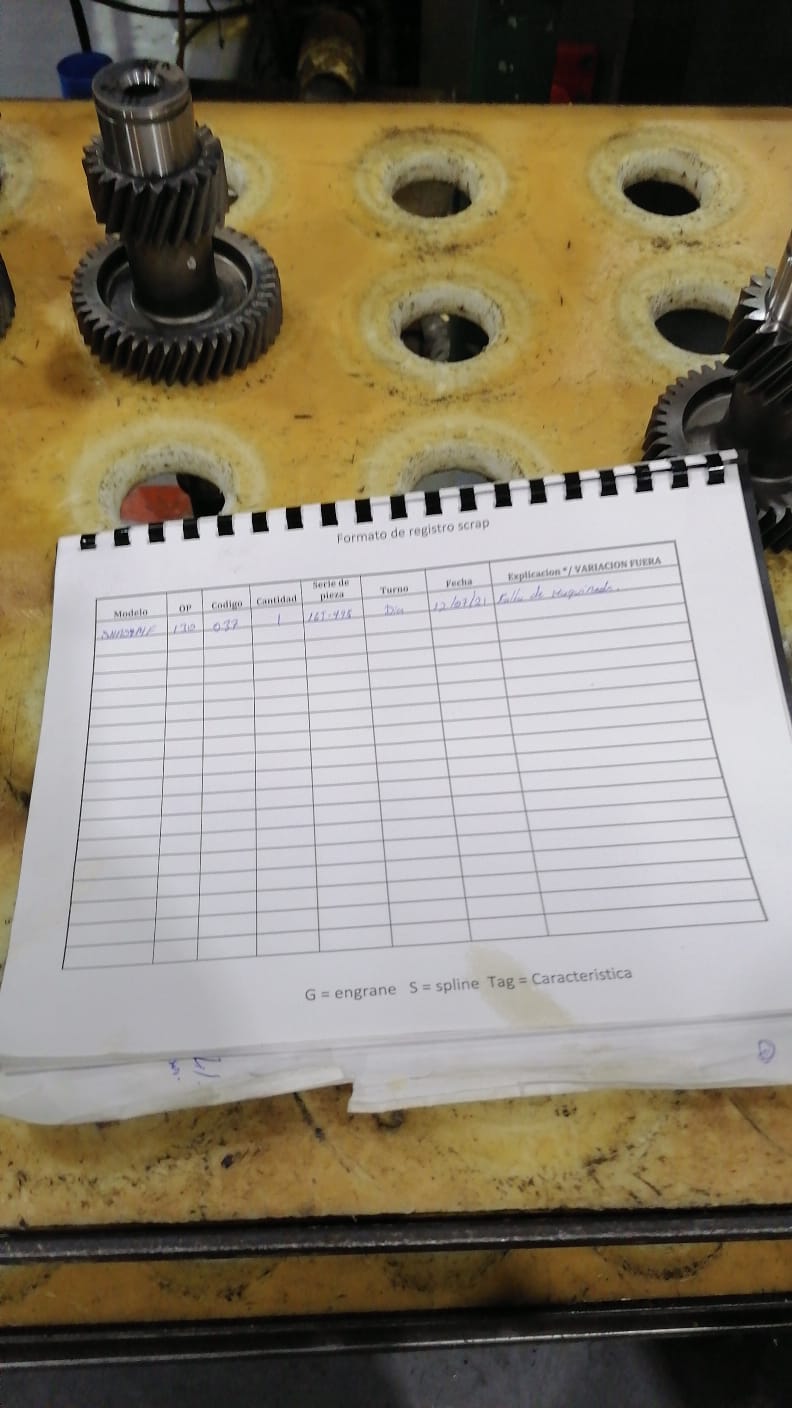 Formato de registro scrap
Modelo OP Codigo Cantidad Serie de pieza Turno Fecha Explicacion */ VARIACION FUERA
130 037 1 Dia 12/07/21 Falla de Maquinado.
G = engrane S = spline Tag = Caracteristica